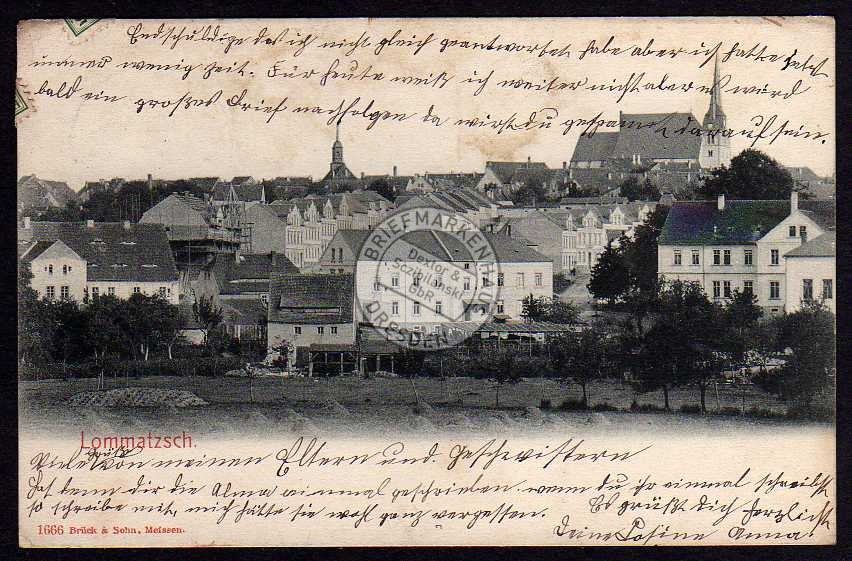 Endschuldige das ich nicht gleich geantwortet habe aber ich hatte jetzt
immer wenig zeit. Für heute weiß ich weiter nicht aber es wird
bald ein großes Brief nachfolgen da wirst du gespannt darauf sein.
BRIEFMARKENHAUS
Dexter &
Sczibilanski
GbR
DRESDEN
Lommatzsch.
Viele Grüße von meinen Eltern und Geschwistern
Hat denn dir die Alma einmal geschrieben. wenn du ihr einmal schreibst
so schreibe mit, mich hätte sie wohl ganz vergessen. Es grüßt Dich herzlichst
1666 Brück & Sohn, Meissen.
Deine Cosine Anna.